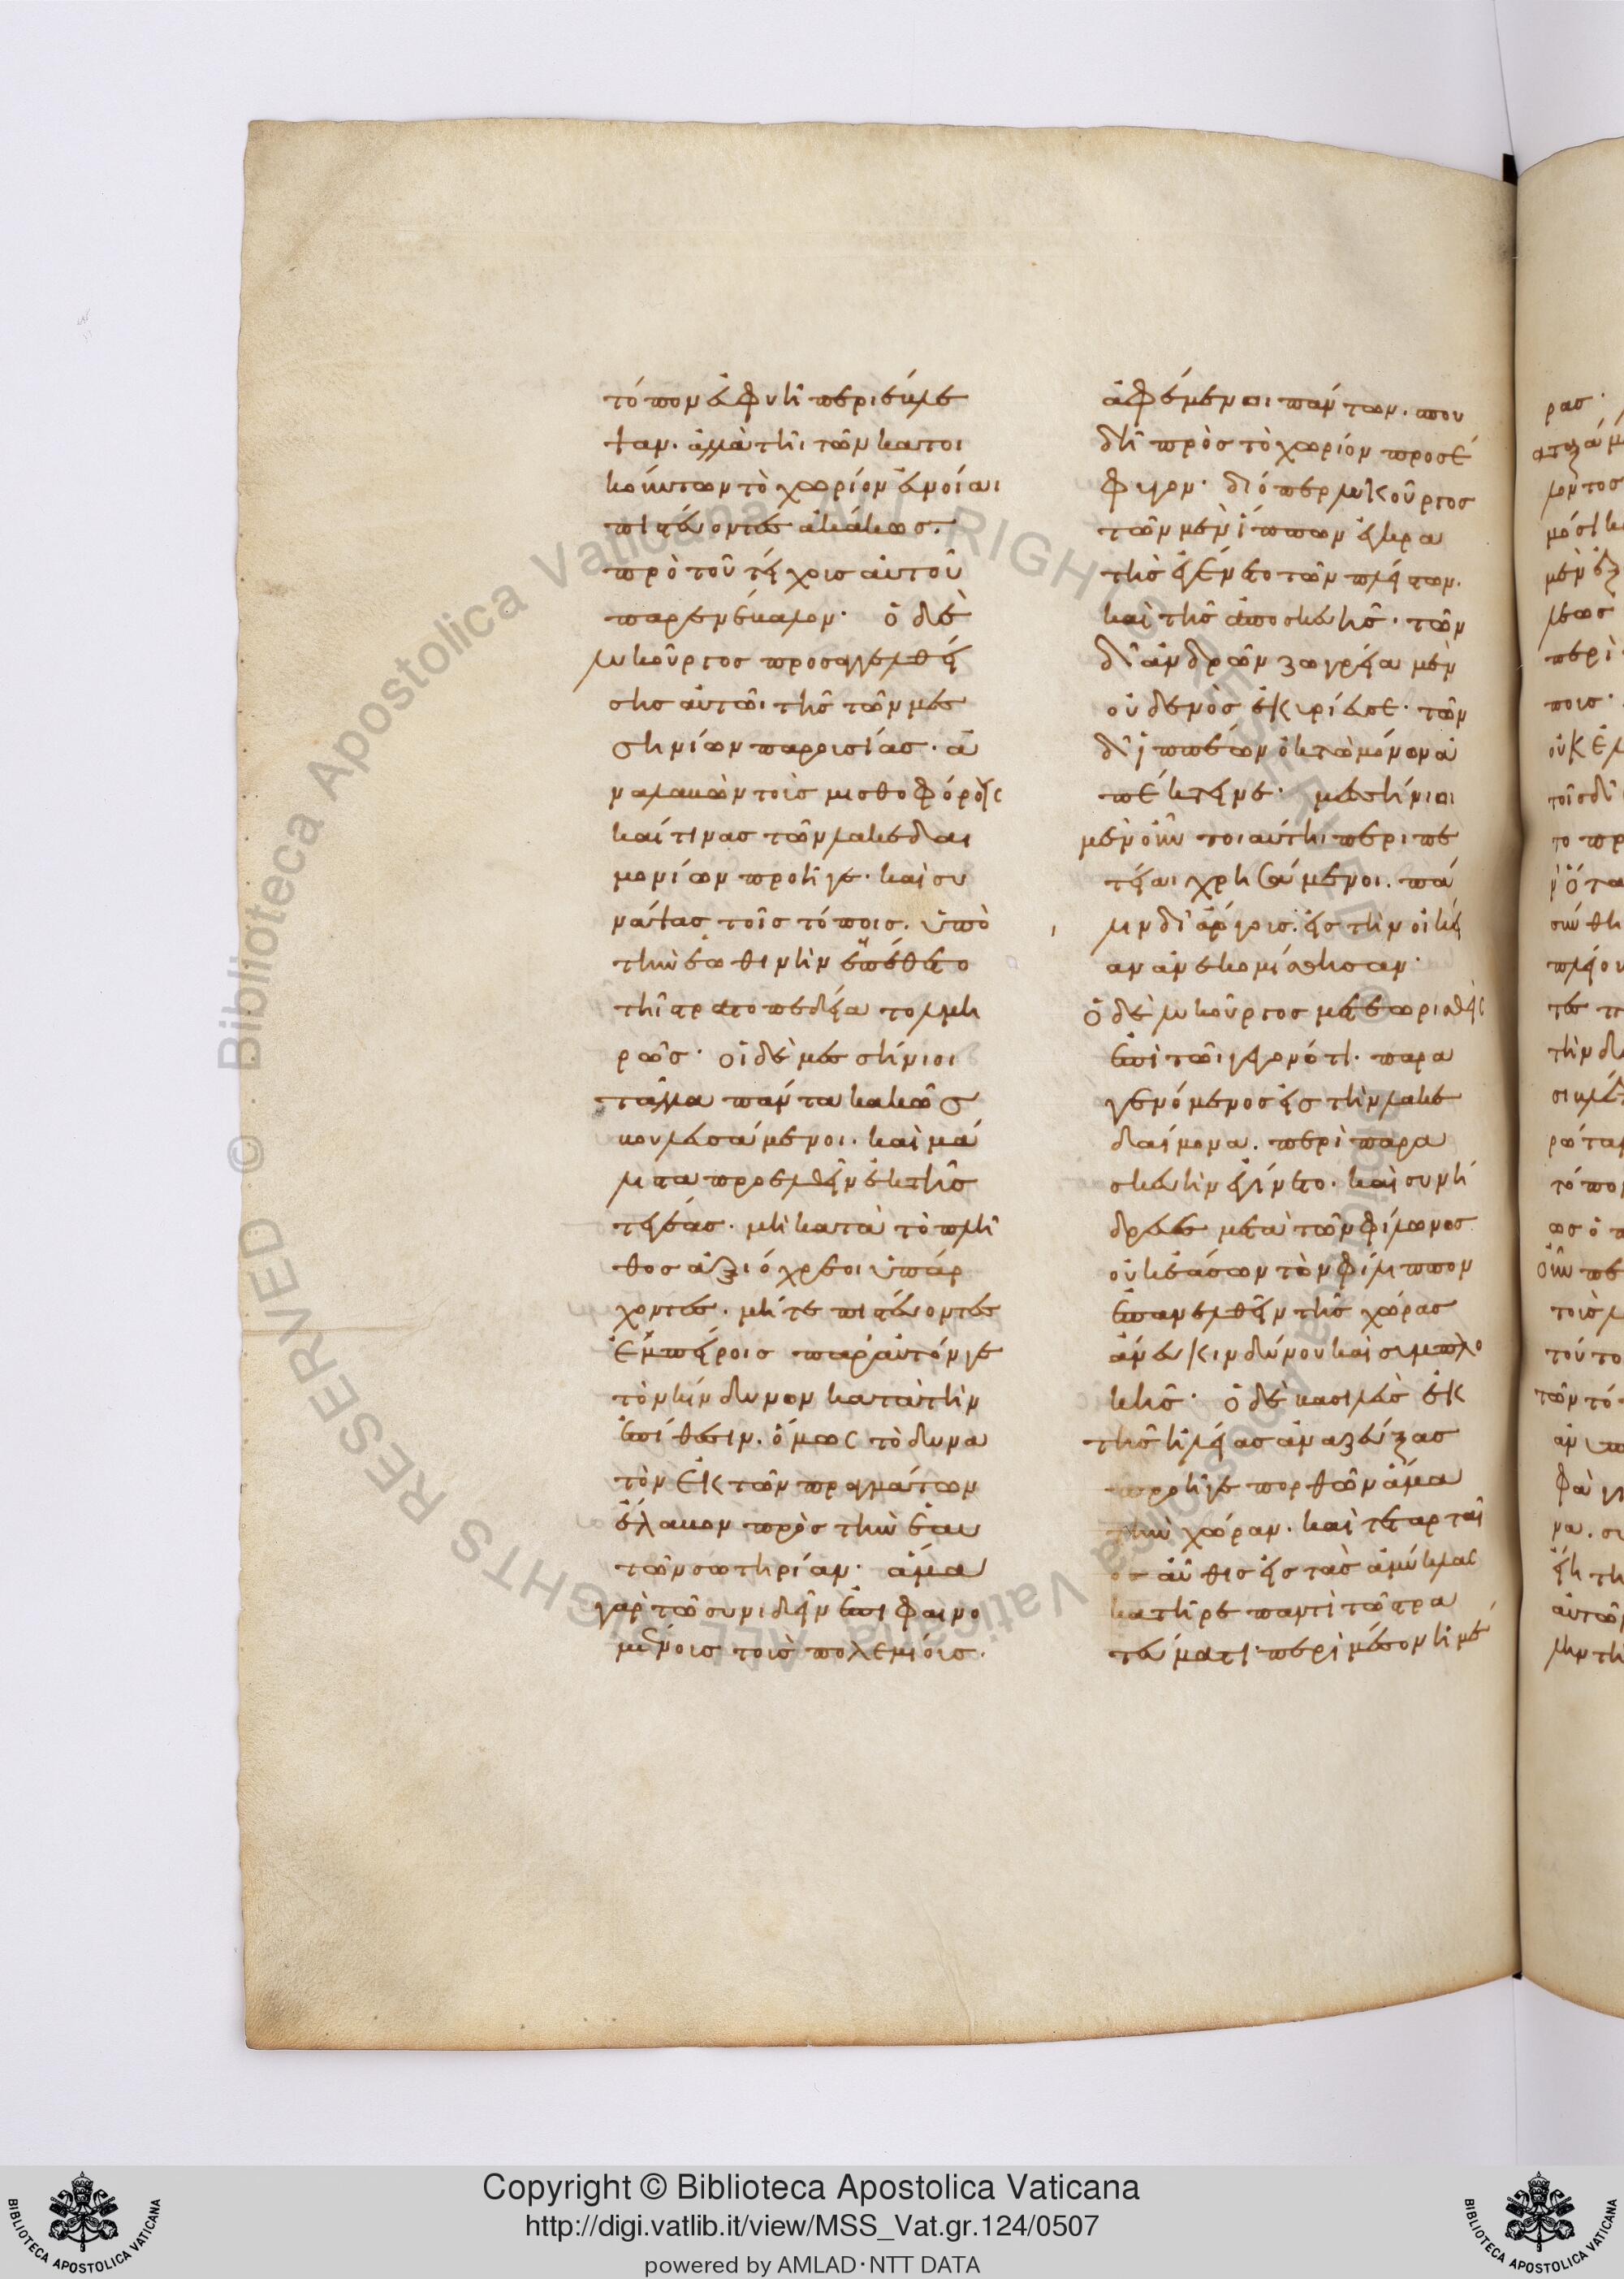 τόπον εὐφυῆ περιεβάλε
ταν. ἀλλὰ τῆι τῶν κατοι
κούντων τὸ χωρίον εὐνοίαι
πιστεύοντες ἀκάκως.
πρὸ τοῦ τείχους αὐτοῦ
παρενέβαλον· ὁ δὲ
λυκοῦργος προσαγγελθεί
σης αὐτῶι τῆς τῶν μεσ
σηνίων παρουσίας. ἀ
ναλαβὼν τοὺς μισθοφόρους
καί τινας τῶν λακεδαι
μονίων προῆγε. καὶ συ
νάψας τοῖς τόποις. ὑπὸ
τὴν ἑωθινὴν ἐπέθετο
τῆι στρατοπεδεία τολμη
ρῶς· οἱ δὲ μεσσήνιοι
τἄλλα πάντα κακῶς
βουλευσάμενοι. καὶ μά
λιστα προελθεῖν ἐκ τῆς
τεγέας. μὴ κατὰ τὸ πλῆ
θος ἀξιόχρεοι ὑπάρ
χοντες. μήτε πιστεύοντες
ἐμπείροις παρ' αὐτόν γε
τὸν κίνδυνον κατὰ τὴν
ἐπίθεσιν. ὅμως τὸ δυνα
τὸν ἐκ τῶν πραγμάτων
ἔλαβον πρὸς τὴν ἑαυ
τῶν σωτηρίαν· ἅμα
γὰρ τῶ συνιδεῖν ἐπιφαινο
μένους τοὺς πολεμίους·
ἀφέμενοι πάντων. σπου
δῆ πρὸς τὸ χωρίον προσέ
φυγον· διόπερ λυκοῦργος
τῶν μὲν ἵππων ἐγκρα
τὴς ἐγένετο τῶν πλείστων.
καὶ τῆς ἀποσκευῆς. τῶν
δ' ἀνδρῶν ζωγρεία μὲν
οὐδενὸς ἐκυρίευσε· τῶν
δ' ἱππέων ὀκτὼ μόνον ἀ
πέκτεινε· μεσσήνιοι
μὲν οὖν τοιαύτηι περιπε
τείαι χρησάμενοι. πά
λιν δι' ἄργους εἰς τὴν οἰκεί
αν ἀνεκομίσθησαν·
ὁ δὲ λυκοῦργος μετεωρισθεὶς
ἐπὶ τῶι γεγονότι. παρα
γενόμενος εἰς τὴν λακε
δαίμονα. περὶ παρα
σκευὴν ἐγίνετο. καὶ συνή
δρευε μετὰ τῶν φίλων ὡς
οὐκ ἐάσων τὸν φίλιππον
ἐπανελθεῖν τῆς χώρας
ἄνευ κινδύνου καὶ συμπλο
κῆς· ὁ δὲ βασιλεὺς ἐκ
τῆς ἡλείας ἀναζεύξας
προῆγε πορθῶν ἅμα
τὴν χώραν. καὶ τεταρταῖ
ος αὖθις εἰς τὰς ἀμύκλας
κατῆρε παντὶ τῶ στρα
τεύματι· περὶ μέσον ἡμέ